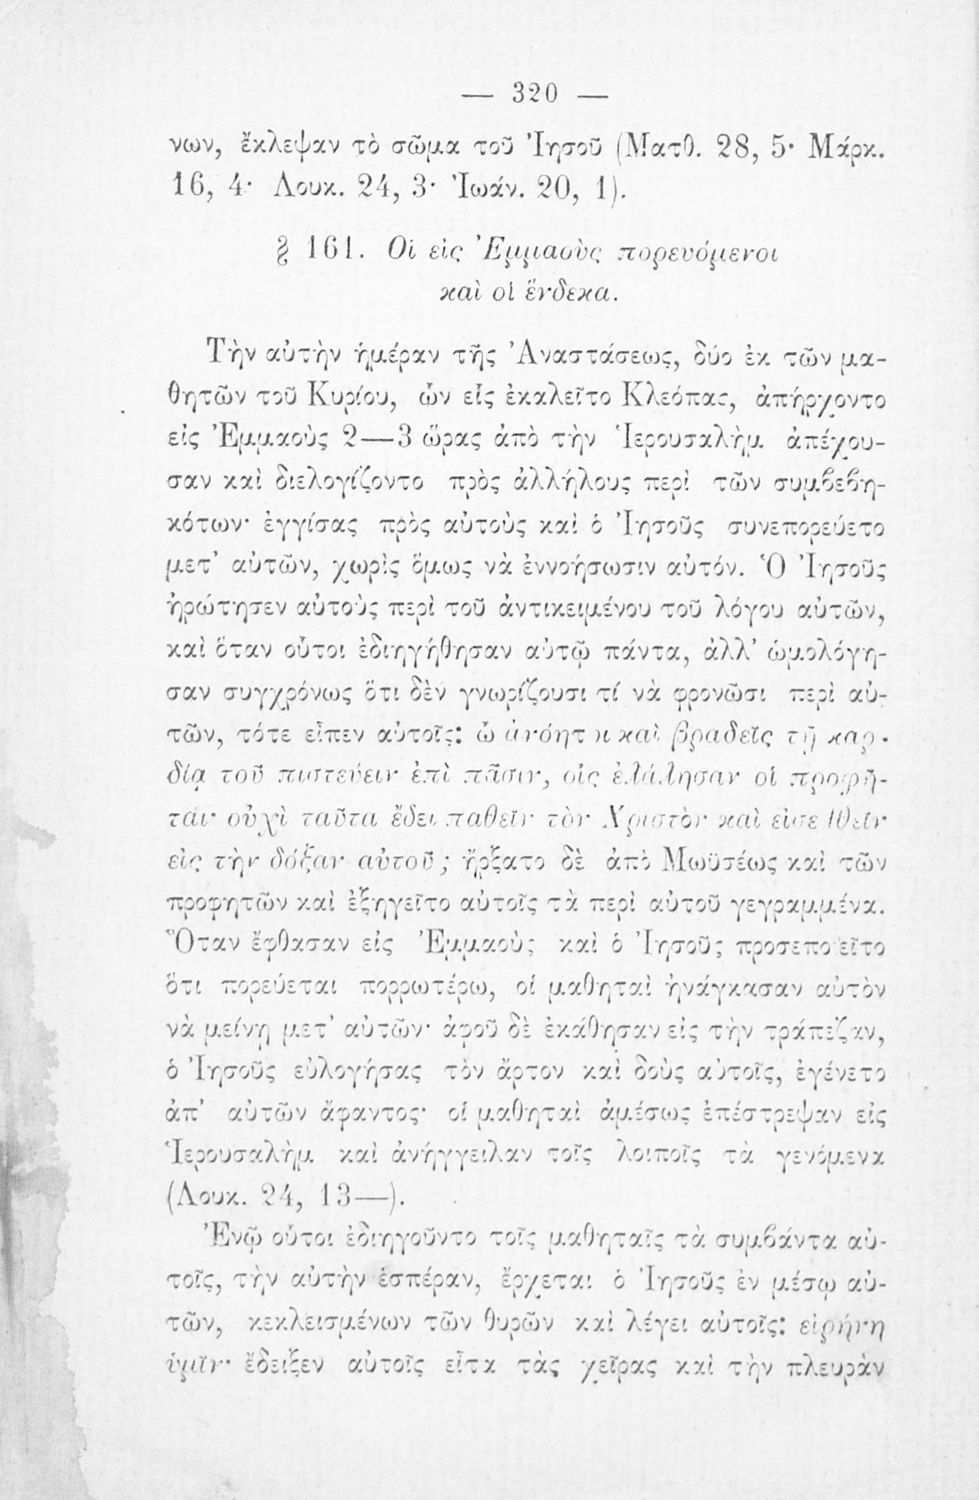 — 320 —
νων, ἔκλεψαν τὸ σῶμα τοῦ Ἰησοῦ (Ματθ. 28, 5· Μάρκ.
16, 4· Λουκ. 24, 3· Ἰωάν. 20, 1).
§ 161. Οἱ εἰς Ἐμμαοὺς πορευόμενοι
καὶ οἱ ἕνδεκα.
Τὴν αὐτὴν ἡμέραν τῆς Ἀναστάσεως, δύο ἐκ τῶν μα-
θητῶν τοῦ Κυρίου, ὧν εἷς ἐκαλεῖτο Κλεόπας, ἀπήρχοντο
εἰς Ἐμμαοὺς 2—3 ὥρας ἀπὸ τὴν Ἱερουσαλὴμ ἀπέχου-
σαν καὶ διελογίζοντο πρὸς ἀλλήλους περὶ τῶν συμβεβη-
κότων· ἐγγίσας πρὸς αὐτοὺς καὶ ὁ Ἰησοῦς συνεπορεύετο
μετ' αὐτῶν, χωρὶς ὅμως νὰ ἐννοήσωσιν αὐτόν. Ὁ Ἰησοῦς
ἠρώτησεν αὐτοὺς περὶ τοῦ ἀντικειμένου τοῦ λόγου αὐτῶν,
καὶ ὅταν οὗτοι ἐδιηγήθησαν αὐτῷ πάντα, ἀλλ' ὡμολόγη-
σαν συγχρόνως ὅτι δὲν γνωρίζουσι τί νὰ φρονῶσι περὶ αὐ-
τῶν, τότε εἶπεν αὐτοῖς: ὦ ἀνόητοι καὶ βραδεῖς τῇ καρ-
δίᾳ τοῦ πιστεύειν ἐπὶ πᾶσιν, οἷς ἐλάλησαν οἱ προφῆ-
ται· οὐχὶ ταῦτα ἔδει παθεῖν τὸν Χριστὸν καὶ εἰσελθεῖν
εἰς τὴν δόξαν αὐτοῦ; ἤρξατο δὲ ἀπὸ Μωϋσέως καὶ τῶν
προφητῶν καὶ ἐξηγεῖτο αὐτοῖς τὰ περὶ αὐτοῦ γεγραμμένα.
Ὅταν ἔφθασαν εἰς Ἐμμαοὺς καὶ ὁ Ἰησοῦς προσεποιεῖτο
ὅτι πορεύεται πορρωτέρω, οἱ μαθηταὶ ἠνάγκασαν αὐτὸν
νὰ μείνῃ μετ' αὐτῶν· ἀφοῦ δὲ ἐκάθησαν εἰς τὴν τράπεζαν,
ὁ Ἰησοῦς εὐλογήσας τὸν ἄρτον καὶ δοὺς αὐτοῖς, ἐγένετο
ἀπ' αὐτῶν ἄφαντος· οἱ μαθηταὶ ἀμέσως ἐπέστρεψαν εἰς
Ἱερουσαλὴμ καὶ ἀνήγγειλαν τοῖς λοιποῖς τὰ γενόμενα
(Λουκ. 24, 13—).
Ἐνῷ οὗτοι ἐδιηγοῦντο τοῖς μαθηταῖς τὰ συμβάντα αὐ-
τοῖς, τὴν αὐτὴν ἑσπέραν, ἔρχεται ὁ Ἰησοῦς ἐν μέσῳ αὐ-
τῶν, κεκλεισμένων τῶν θυρῶν καὶ λέγει αὐτοῖς: εἰρήνη
ὑμῖν· ἔδειξεν αὐτοῖς εἶτα τὰς χεῖρας καὶ τὴν πλευρὰν